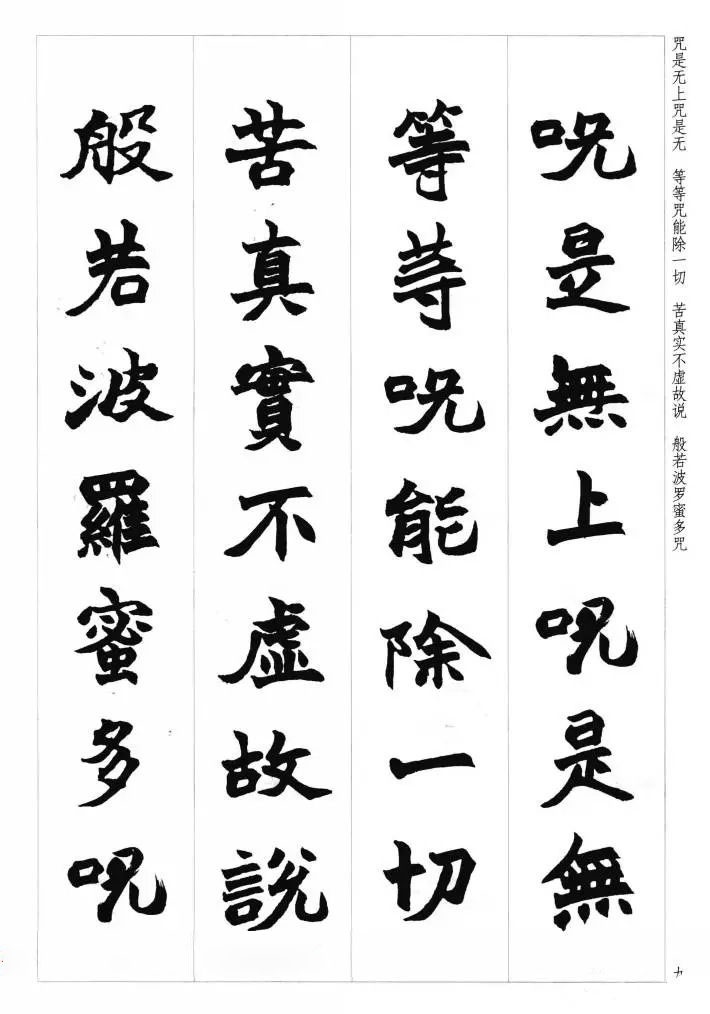 咒是无上咒是无　等等咒能除一切　苦真实不虚故说　般若波罗蜜多咒
呪是無上呪是無
等等呪能除一切
苦真實不虛故說
般若波羅蜜多呪
九